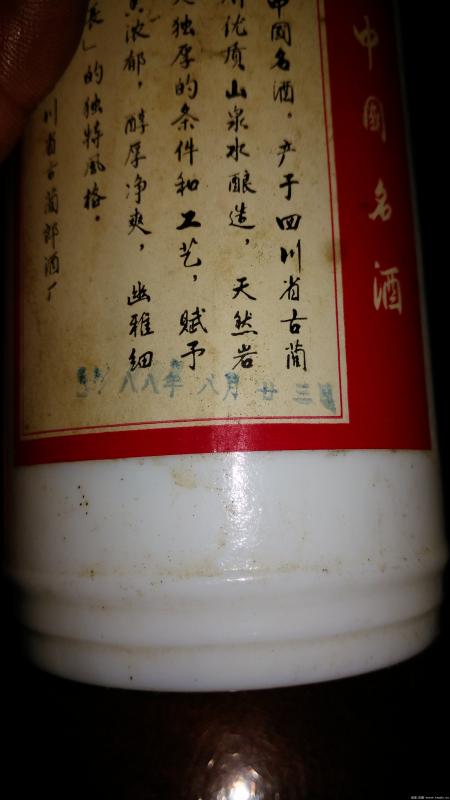 中國名酒
中国名酒，产于四川省古蔺
优质山泉水酿造，天然岩
独厚的条件和工艺，赋予
浓郁，醇厚净爽，幽雅细
长」的独特風格。
川省古蔺郎酒厂
八八年八月廿三日